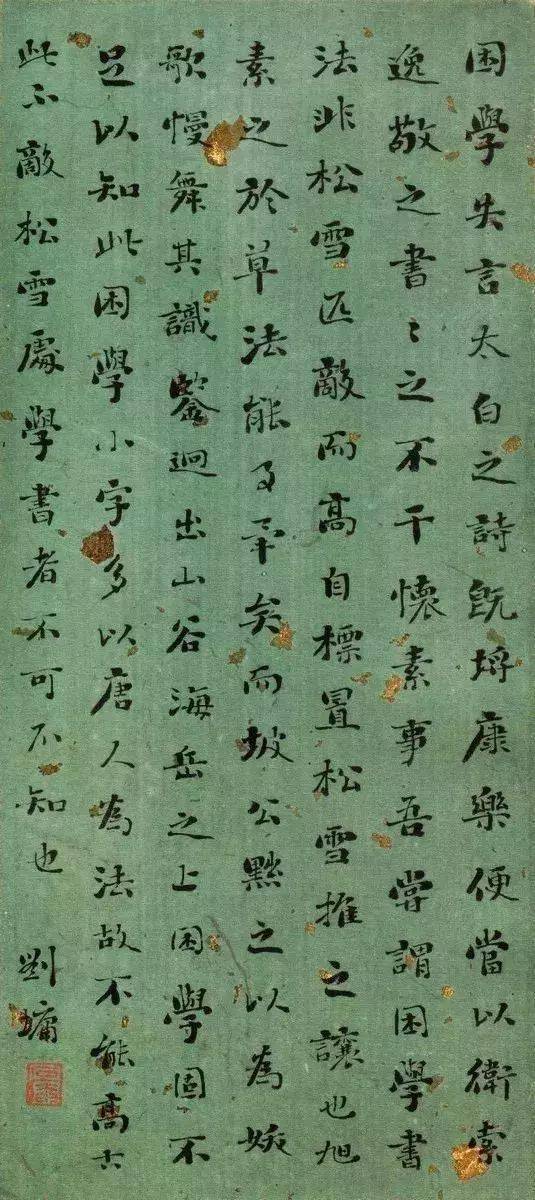 困學失言太白之詩既埒康樂便當以衛索
逸敬之書〻之不干懷素事吾嘗謂困學書
法非松雪匹敵而高自標置松雪推之讓也旭
素之於草法能事矣而坡公黜之以為妖
歌慢舞其識鑒迥出山谷海岳之上困學固不
足以知此困學小字多以唐人為法故不能高古
此不敵松雪處學書者不可不知也 劉墉